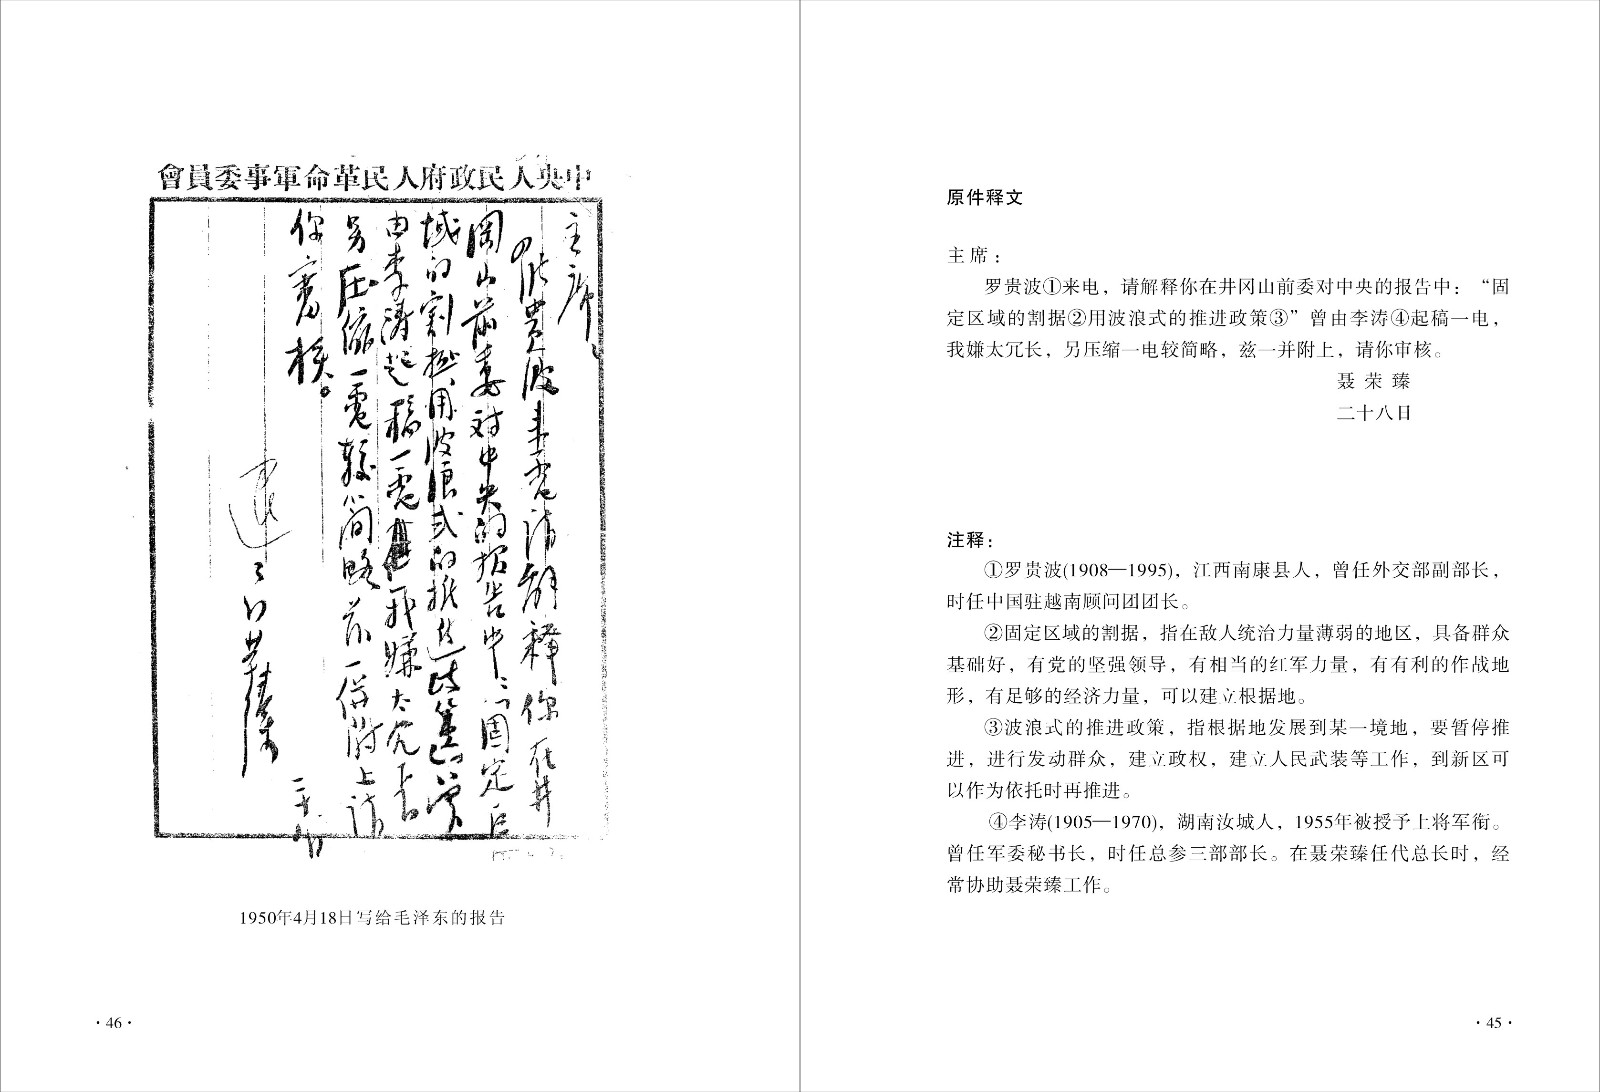 中央人民政府人民革命軍事委員會
主席
罗贵波来電请解释你在井
岡山前委对中央的报告中：“固定区
域的割据用波浪式的推进政策”曾
由李涛起稿一電我嫌太冗长
另压缩一電较簡略茲一併附上请
你審核。
聂荣臻
二十八日
1950年4月18日写给毛泽东的报告
·46·
原件释文
主席：
罗贵波①来电，请解释你在井冈山前委对中央的报告中：“固
定区域的割据②用波浪式的推进政策③”曾由李涛④起稿一电，
我嫌太冗长，另压缩一电较简略，兹一并附上，请你审核。
聂荣臻
二十八日
注释：
①罗贵波(1908—1995)，江西南康县人，曾任外交部副部长，
时任中国驻越南顾问团团长。
②固定区域的割据，指在敌人统治力量薄弱的地区，具备群众
基础好，有党的坚强领导，有相当的红军力量，有有利的作战地
形，有足够的经济力量，可以建立根据地。
③波浪式的推进政策，指根据地发展到某一境地，要暂停推
进，进行发动群众，建立政权，建立人民武装等工作，到新区可
以作为依托时再推进。
④李涛(1905—1970)，湖南汝城人，1955年被授予上将军衔。
曾任军委秘书长，时任总参三部部长。在聂荣臻任代总长时，经
常协助聂荣臻工作。
·45·